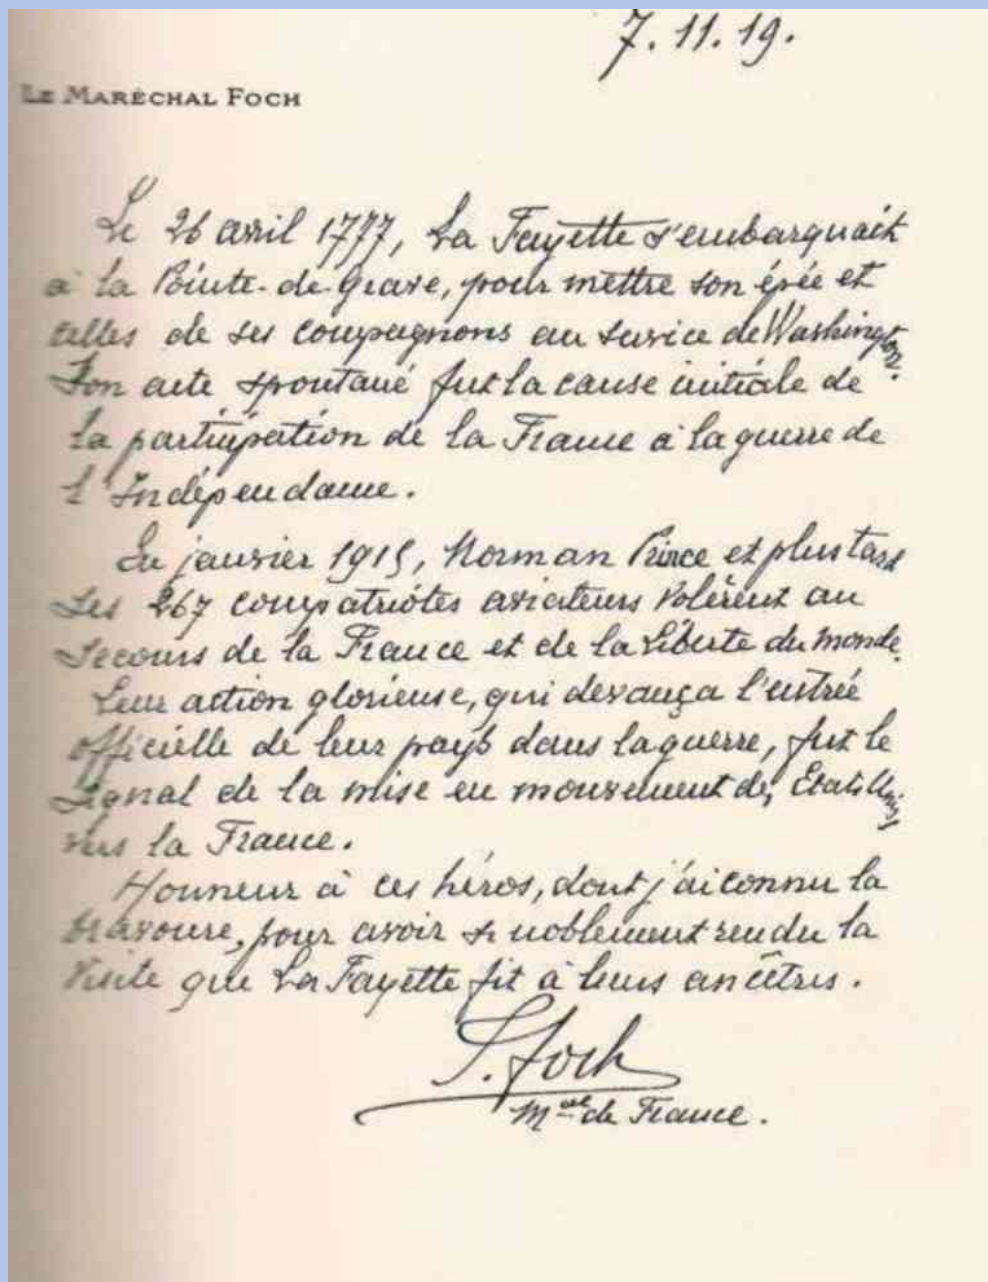 7.11.19.
LE MARÉCHAL FOCH
Le 26 avril 1777, La Fayette s'embarquait
à la Pointe-de-Grave, pour mettre son épée et
celles de ses compagnons au service de Washington.
Son acte spontané fut la cause initiale de
la participation de la France à la guerre de
l'Indépendance.
En janvier 1915, Norman Prince et plus tard
ses 267 compatriotes aviateurs volèrent au
secours de la France et de la Liberté du monde.
Leur action glorieuse, qui devança l'entrée
officielle de leur pays dans la guerre, fut le
signal de la mise en mouvement des Etats Unis
vers la France.
Honneur à ces héros, dont j'ai connu la
bravoure, pour avoir si noblement rendu la
visite que La Fayette fit à leurs ancêtres.
F. Foch
Mal de France.